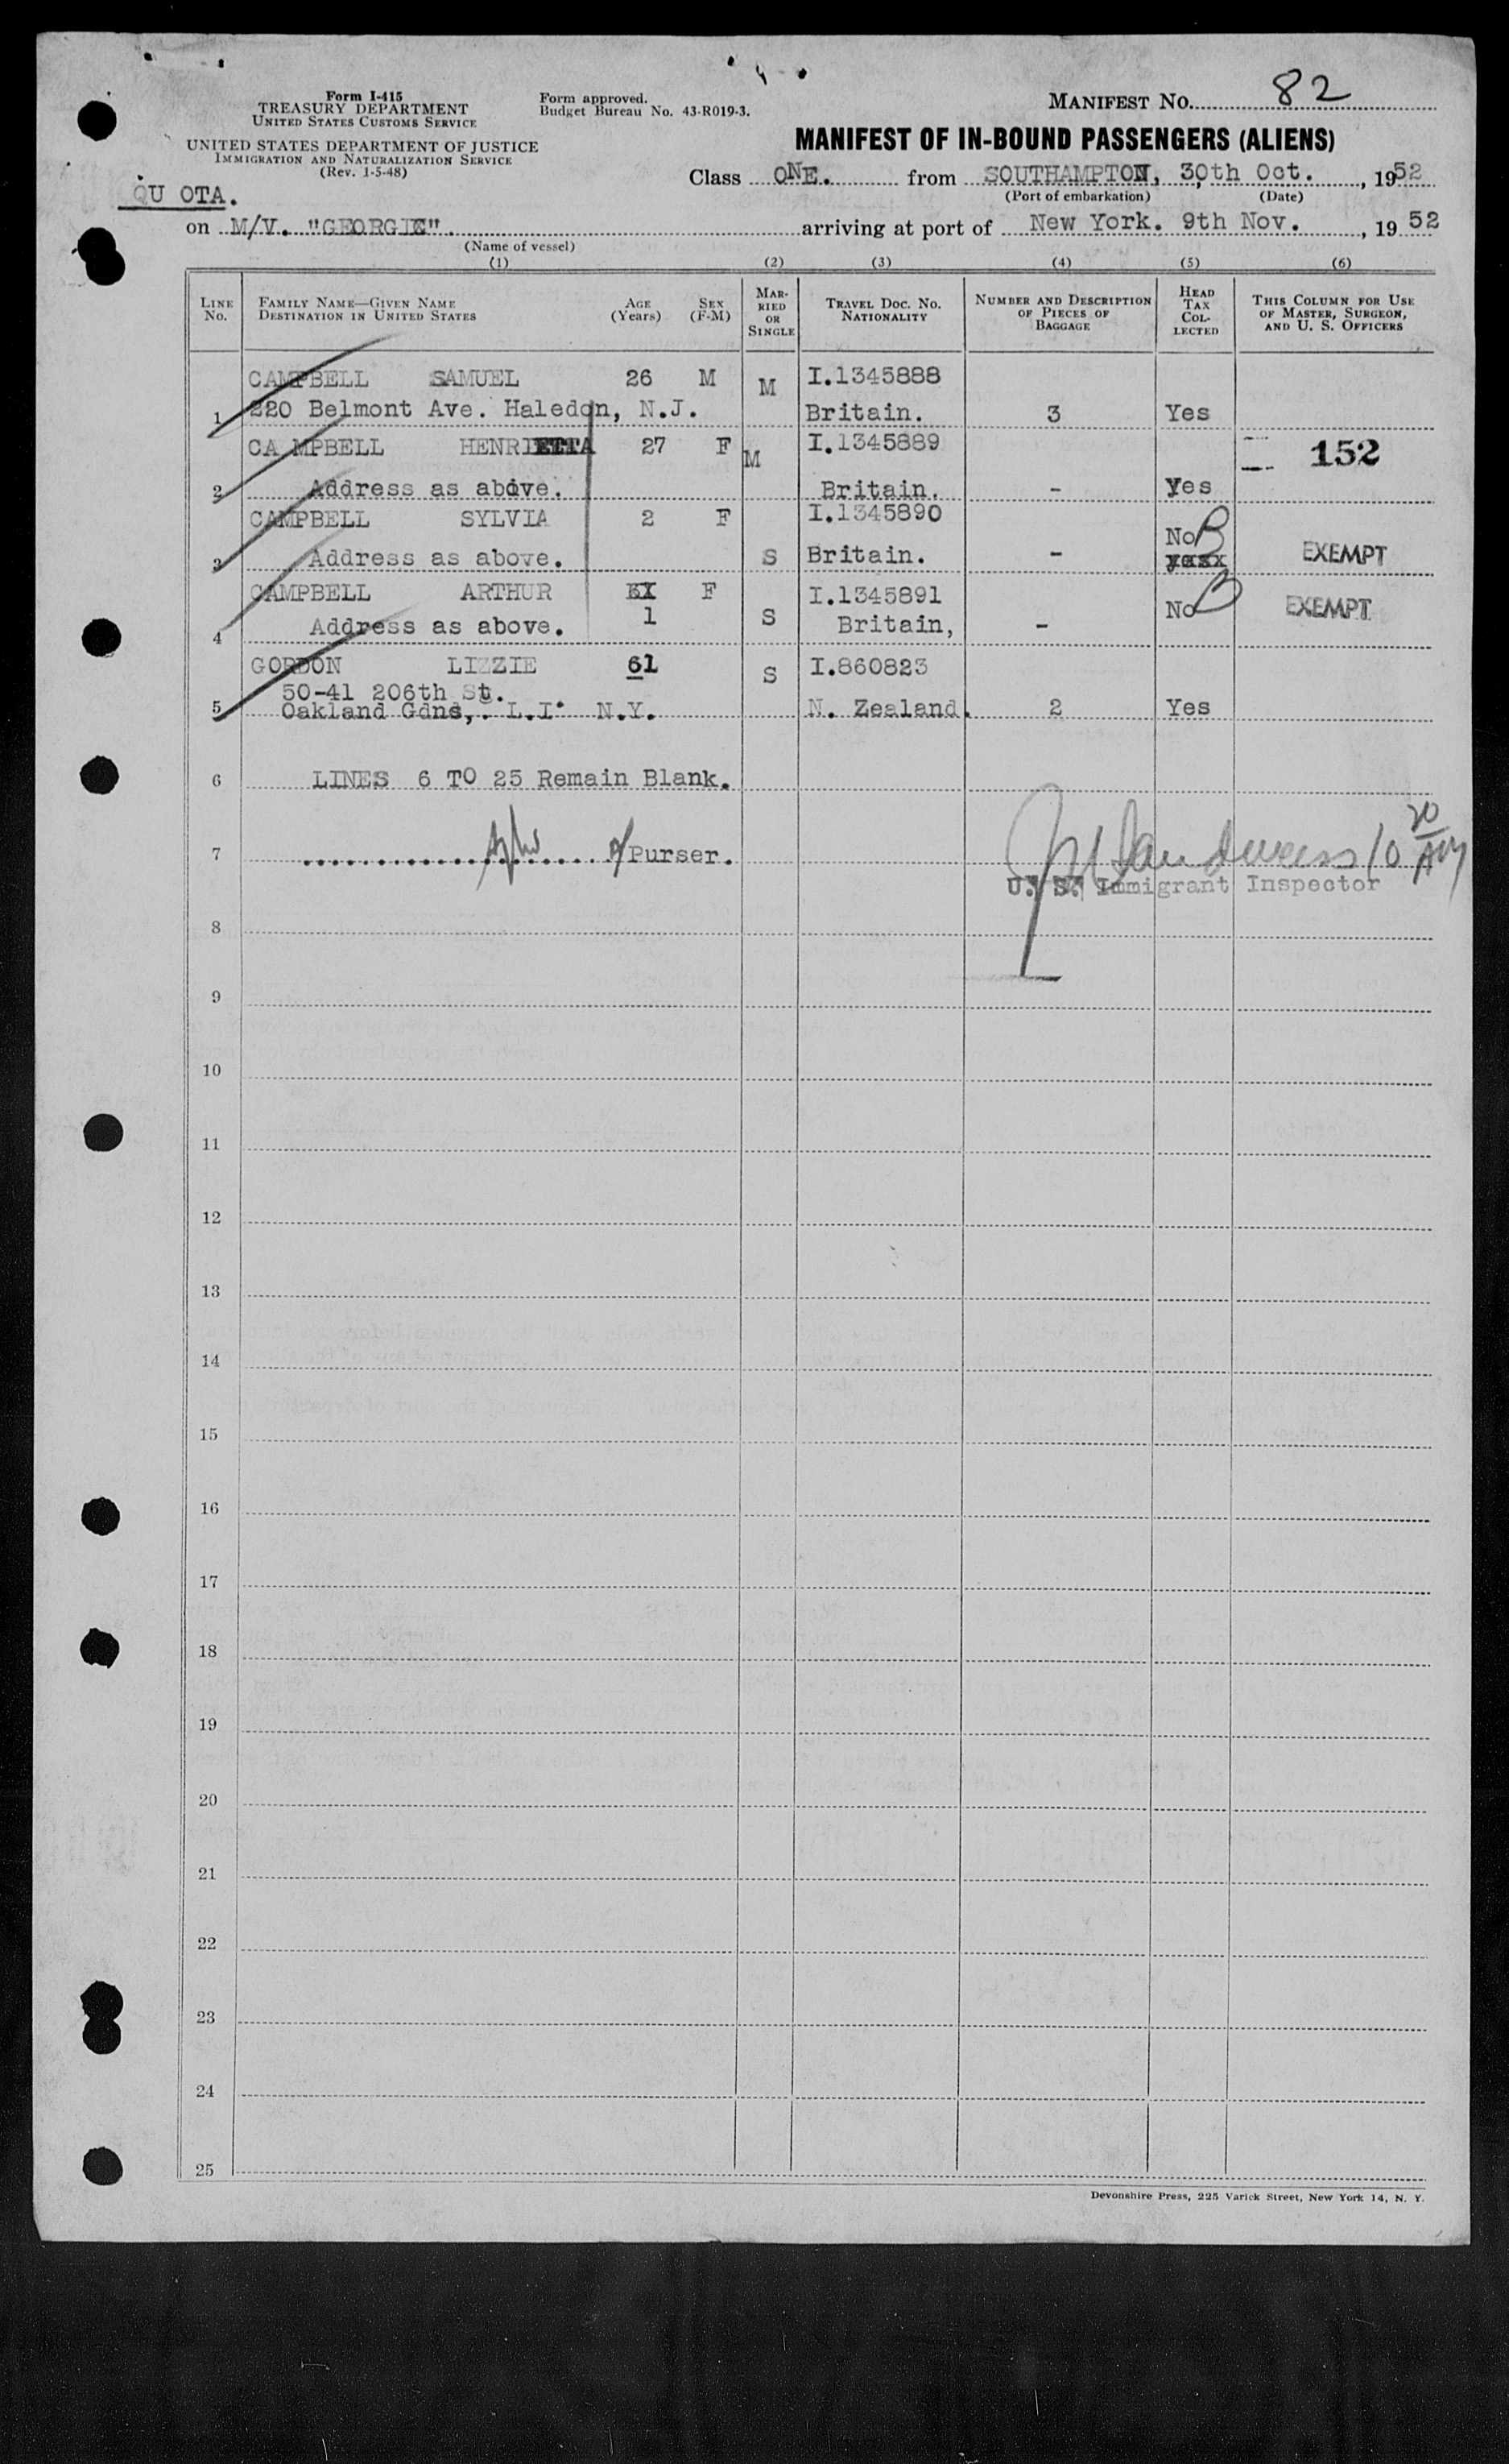 Form I-415
TREASURY DEPARTMENT
UNITED STATES CUSTOMS SERVICE
UNITED STATES DEPARTMENT OF JUSTICE
IMMIGRATION AND NATURALIZATION SERVICE
(Rev. 1-5-48)
Form approved.
Budget Bureau No. 43-R019-3.
MANIFEST NO. 82
MANIFEST OF IN-BOUND PASSENGERS (ALIENS)
Class ONE. from SOUTHAMPTON, 30th Oct., 1952
(Port of embarkation) (Date)
QU OTA.
on M/V. "GEORGIE". arriving at port of New York. 9th Nov., 1952
(Name of vessel)
(1) (2) (3) (4) (5) (6)
LINE No. FAMILY NAME—GIVEN NAME DESTINATION IN UNITED STATES AGE (Years) SEX (F-M) MARRIED OR SINGLE TRAVEL DOC. NO. NATIONALITY NUMBER AND DESCRIPTION OF PIECES OF BAGGAGE HEAD TAX COLLECTED THIS COLUMN FOR USE OF MASTER, SURGEON, AND U. S. OFFICERS
CAMPBELL SAMUEL 26 M M I.1345888
1 220 Belmont Ave. Haledon, N.J. Britain. 3 Yes
CA MPBELL HENRIETTA 27 F M I.1345889 152
2 Address as above. Britain. - Yes
CAMPBELL SYLVIA 2 F I.1345890 No B
3 Address as above. S Britain. - yesx EXEMPT
CAMPBELL ARTHUR F I.1345891 No B EXEMPT
4 Address as above. 1 S Britain, -
GORDON LIZZIE 61 S I.860823
50-41 206th St.
5 Oakland Gdns,. L.I. N.Y. N. Zealand. 2 Yes
6 LINES 6 TO 25 Remain Blank.
7 Purser. 10 20 AM
U. S. Immigrant Inspector
8
9
10
11
12
13
14
15
16
17
18
19
20
21
22
23
24
25
Devonshire Press, 225 Varick Street, New York 14, N. Y.